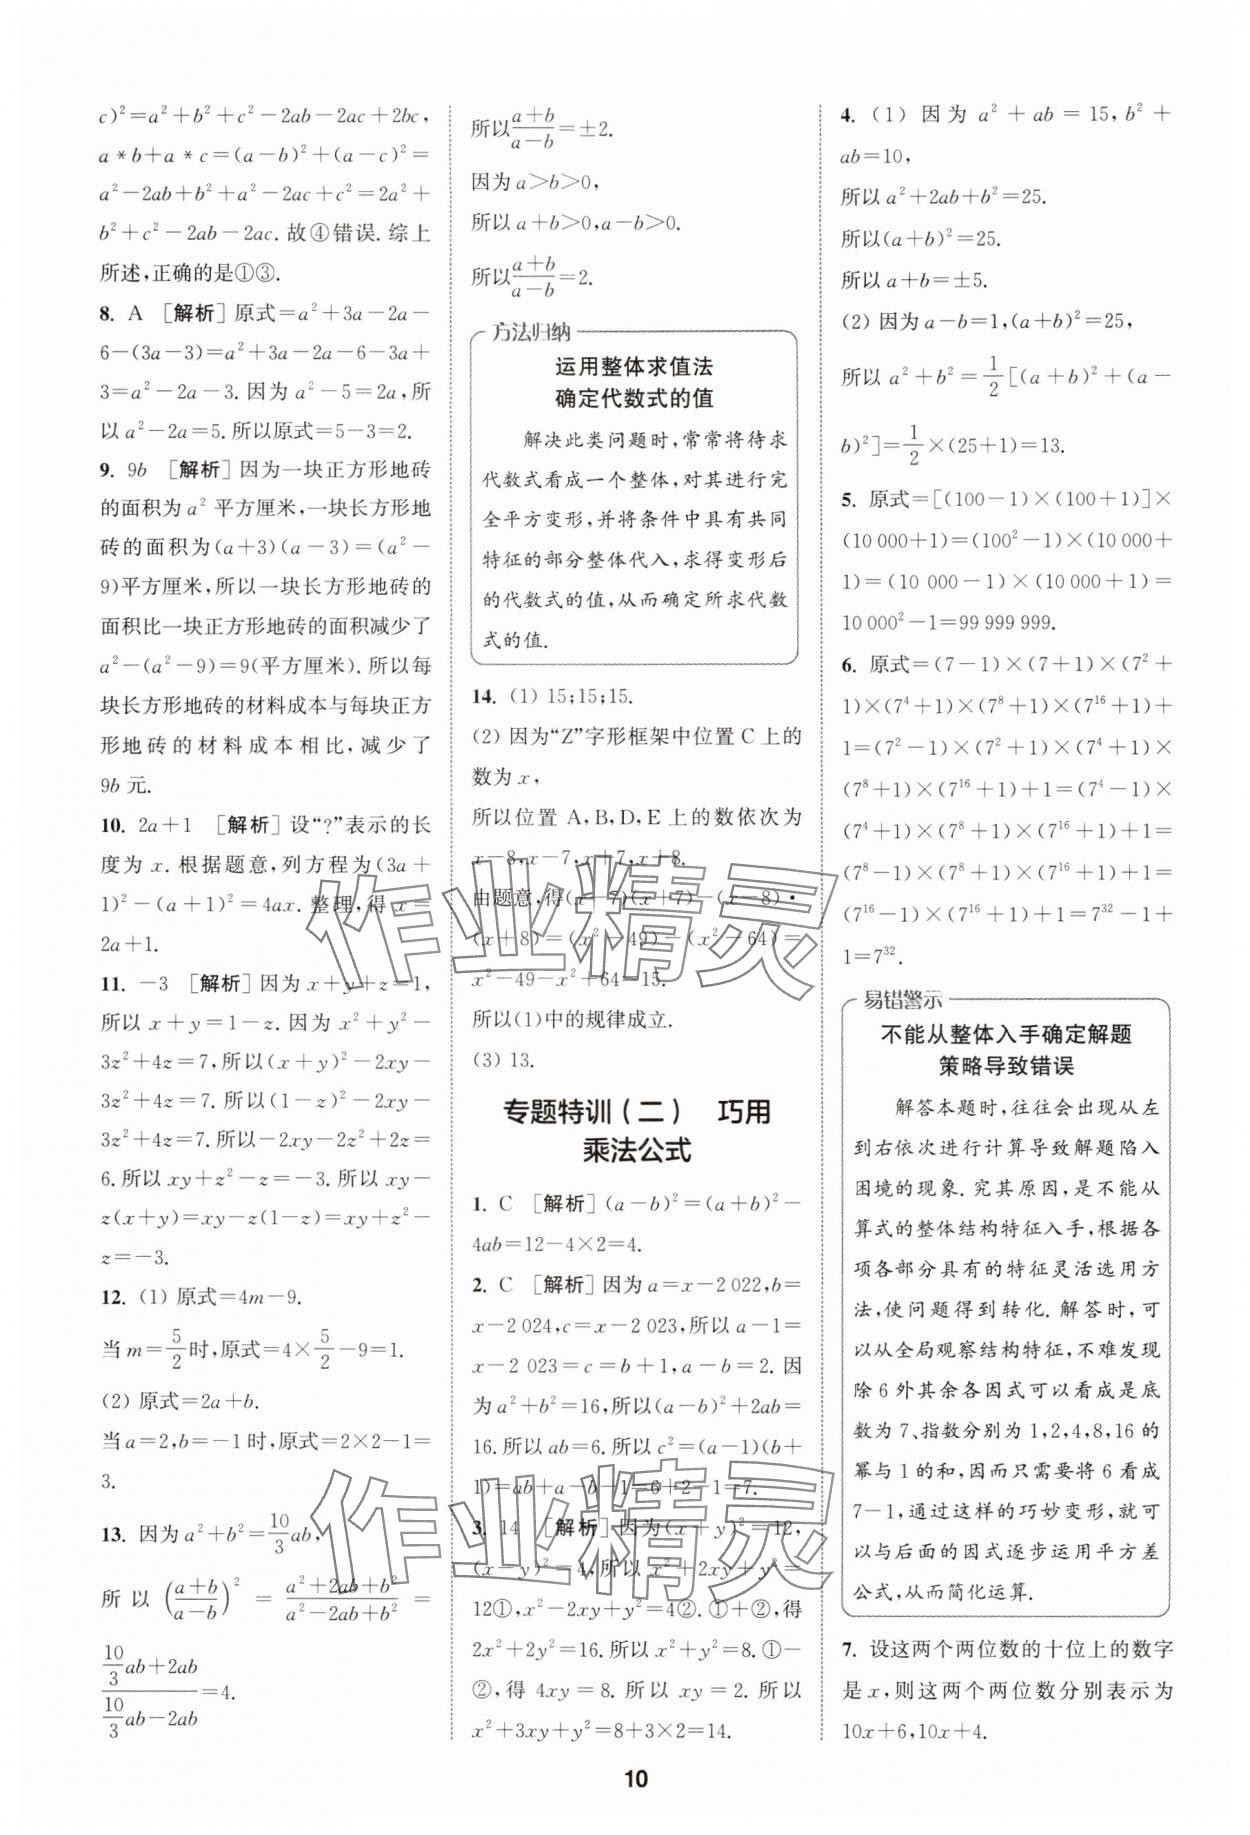 c)²=a²+b²+c²-2ab-2ac+2bc,
a*b+a*c=(a-b)²+(a-c)²=
a²-2ab+b²+a²-2ac+c²=2a²+
b²+c²-2ab-2ac.故④错误.综上
所述,正确的是①③.
8. A [解析]原式=a²+3a-2a-
6-(3a-3)=a²+3a-2a-6-3a+
3=a²-2a-3.因为a²-5=2a,所
以a²-2a=5.所以原式=5-3=2.
9. 9b [解析]因为一块正方形地砖
的面积为a²平方厘米,一块长方形地
砖的面积为(a+3)(a-3)=(a²-
9)平方厘米,所以一块长方形地砖的
面积比一块正方形地砖的面积减少了
a²-(a²-9)=9(平方厘米).所以每
块长方形地砖的材料成本与每块正方
形地砖的材料成本相比,减少了
9b元.
10. 2a+1 [解析]设“?”表示的长
度为x.根据题意,列方程为(3a+
1)²-(a+1)²=4ax.整理,得x=
2a+1.
11. -3 [解析]因为x+y+z=1,
所以x+y=1-z.因为x²+y²-
3z²+4z=7,所以(x+y)²-2xy-
3z²+4z=7.所以(1-z)²-2xy-
3z²+4z=7.所以-2xy-2z²+2z=
6.所以xy+z²-z=-3.所以xy-
z(x+y)=xy-z(1-z)=xy+z²-
z=-3.
12. (1) 原式=4m-9.
当m=5/2时,原式=4×5/2-9=1.
(2) 原式=2a+b.
当a=2,b=-1时,原式=2×2-1=
3.
13. 因为a²+b²=10/3ab,
所以((a+b)/(a-b))²=(a²+2ab+b²)/(a²-2ab+b²)=
(10/3ab+2ab)/(10/3ab-2ab)=4.
所以(a+b)/(a-b)=±2.
因为a>b>0,
所以a+b>0,a-b>0.
所以(a+b)/(a-b)=2.
方法归纳
运用整体求值法
确定代数式的值
解决此类问题时,常常将待求
代数式看成一个整体,对其进行完
全平方变形,并将条件中具有共同
特征的部分整体代入,求得变形后
的代数式的值,从而确定所求代数
式的值.
14. (1) 15;15;15.
(2) 因为“Z”字形框架中位置C上的
数为x,
所以位置A,B,D,E上的数依次为
x-8,x-7,x+7,x+8.
由题意,得(x-7)(x+7)-(x-8)·
(x+8)=(x²-49)-(x²-64)=
x²-49-x²+64=15.
所以(1)中的规律成立.
(3) 13.
专题特训(二) 巧用
乘法公式
1. C [解析](a-b)²=(a+b)²-
4ab=12-4×2=4.
2. C [解析]因为a=x-2022,b=
x-2024,c=x-2023,所以a-1=
x-2023=c=b+1,a-b=2.因
为a²+b²=16,所以(a-b)²+2ab=
16.所以ab=6.所以c²=(a-1)(b+
1)=ab+a-b-1=6+2-1=7.
3. 14 [解析]因为(x+y)²=12,
(x-y)²=4,所以x²+2xy+y²=
12①,x²-2xy+y²=4②.①+②,得
2x²+2y²=16.所以x²+y²=8.①-
②,得4xy=8.所以xy=2.所以
x²+3xy+y²=8+3×2=14.
4. (1) 因为a²+ab=15,b²+
ab=10,
所以a²+2ab+b²=25.
所以(a+b)²=25.
所以a+b=±5.
(2) 因为a-b=1,(a+b)²=25,
所以a²+b²=1/2[(a+b)²+(a-
b)²]=1/2×(25+1)=13.
5. 原式=[(100-1)×(100+1)]×
(10 000+1)=(100²-1)×(10 000+
1)=(10 000-1)×(10 000+1)=
10 000²-1=99 999 999.
6. 原式=(7-1)×(7+1)×(7²+
1)×(7⁴+1)×(7⁸+1)×(7¹⁶+1)+
1=(7²-1)×(7²+1)×(7⁴+1)×
(7⁸+1)×(7¹⁶+1)+1=(7⁴-1)×
(7⁴+1)×(7⁸+1)×(7¹⁶+1)+1=
(7⁸-1)×(7⁸+1)×(7¹⁶+1)+1=
(7¹⁶-1)×(7¹⁶+1)+1=7³²-1+
1=7³².
易错警示
不能从整体入手确定解题
策略导致错误
解答本题时,往往会出现从左
到右依次进行计算导致解题陷入
困境的现象.究其原因,是不能从
算式的整体结构特征入手,根据各
项各部分具有的特征灵活选用方
法,使问题得到转化.解答时,可
以从全局观察结构特征,不难发现
除6外其余各因式可以看成是底
数为7、指数分别为1,2,4,8,16的
幂与1的和,因而只需要将6看成
7-1,通过这样的巧妙变形,就可
以与后面的因式逐步运用平方差
公式,从而简化运算.
7. 设这两个两位数的十位上的数字
是x,则这两个两位数分别表示为
10x+6,10x+4.
10
作业精灵
作业精灵